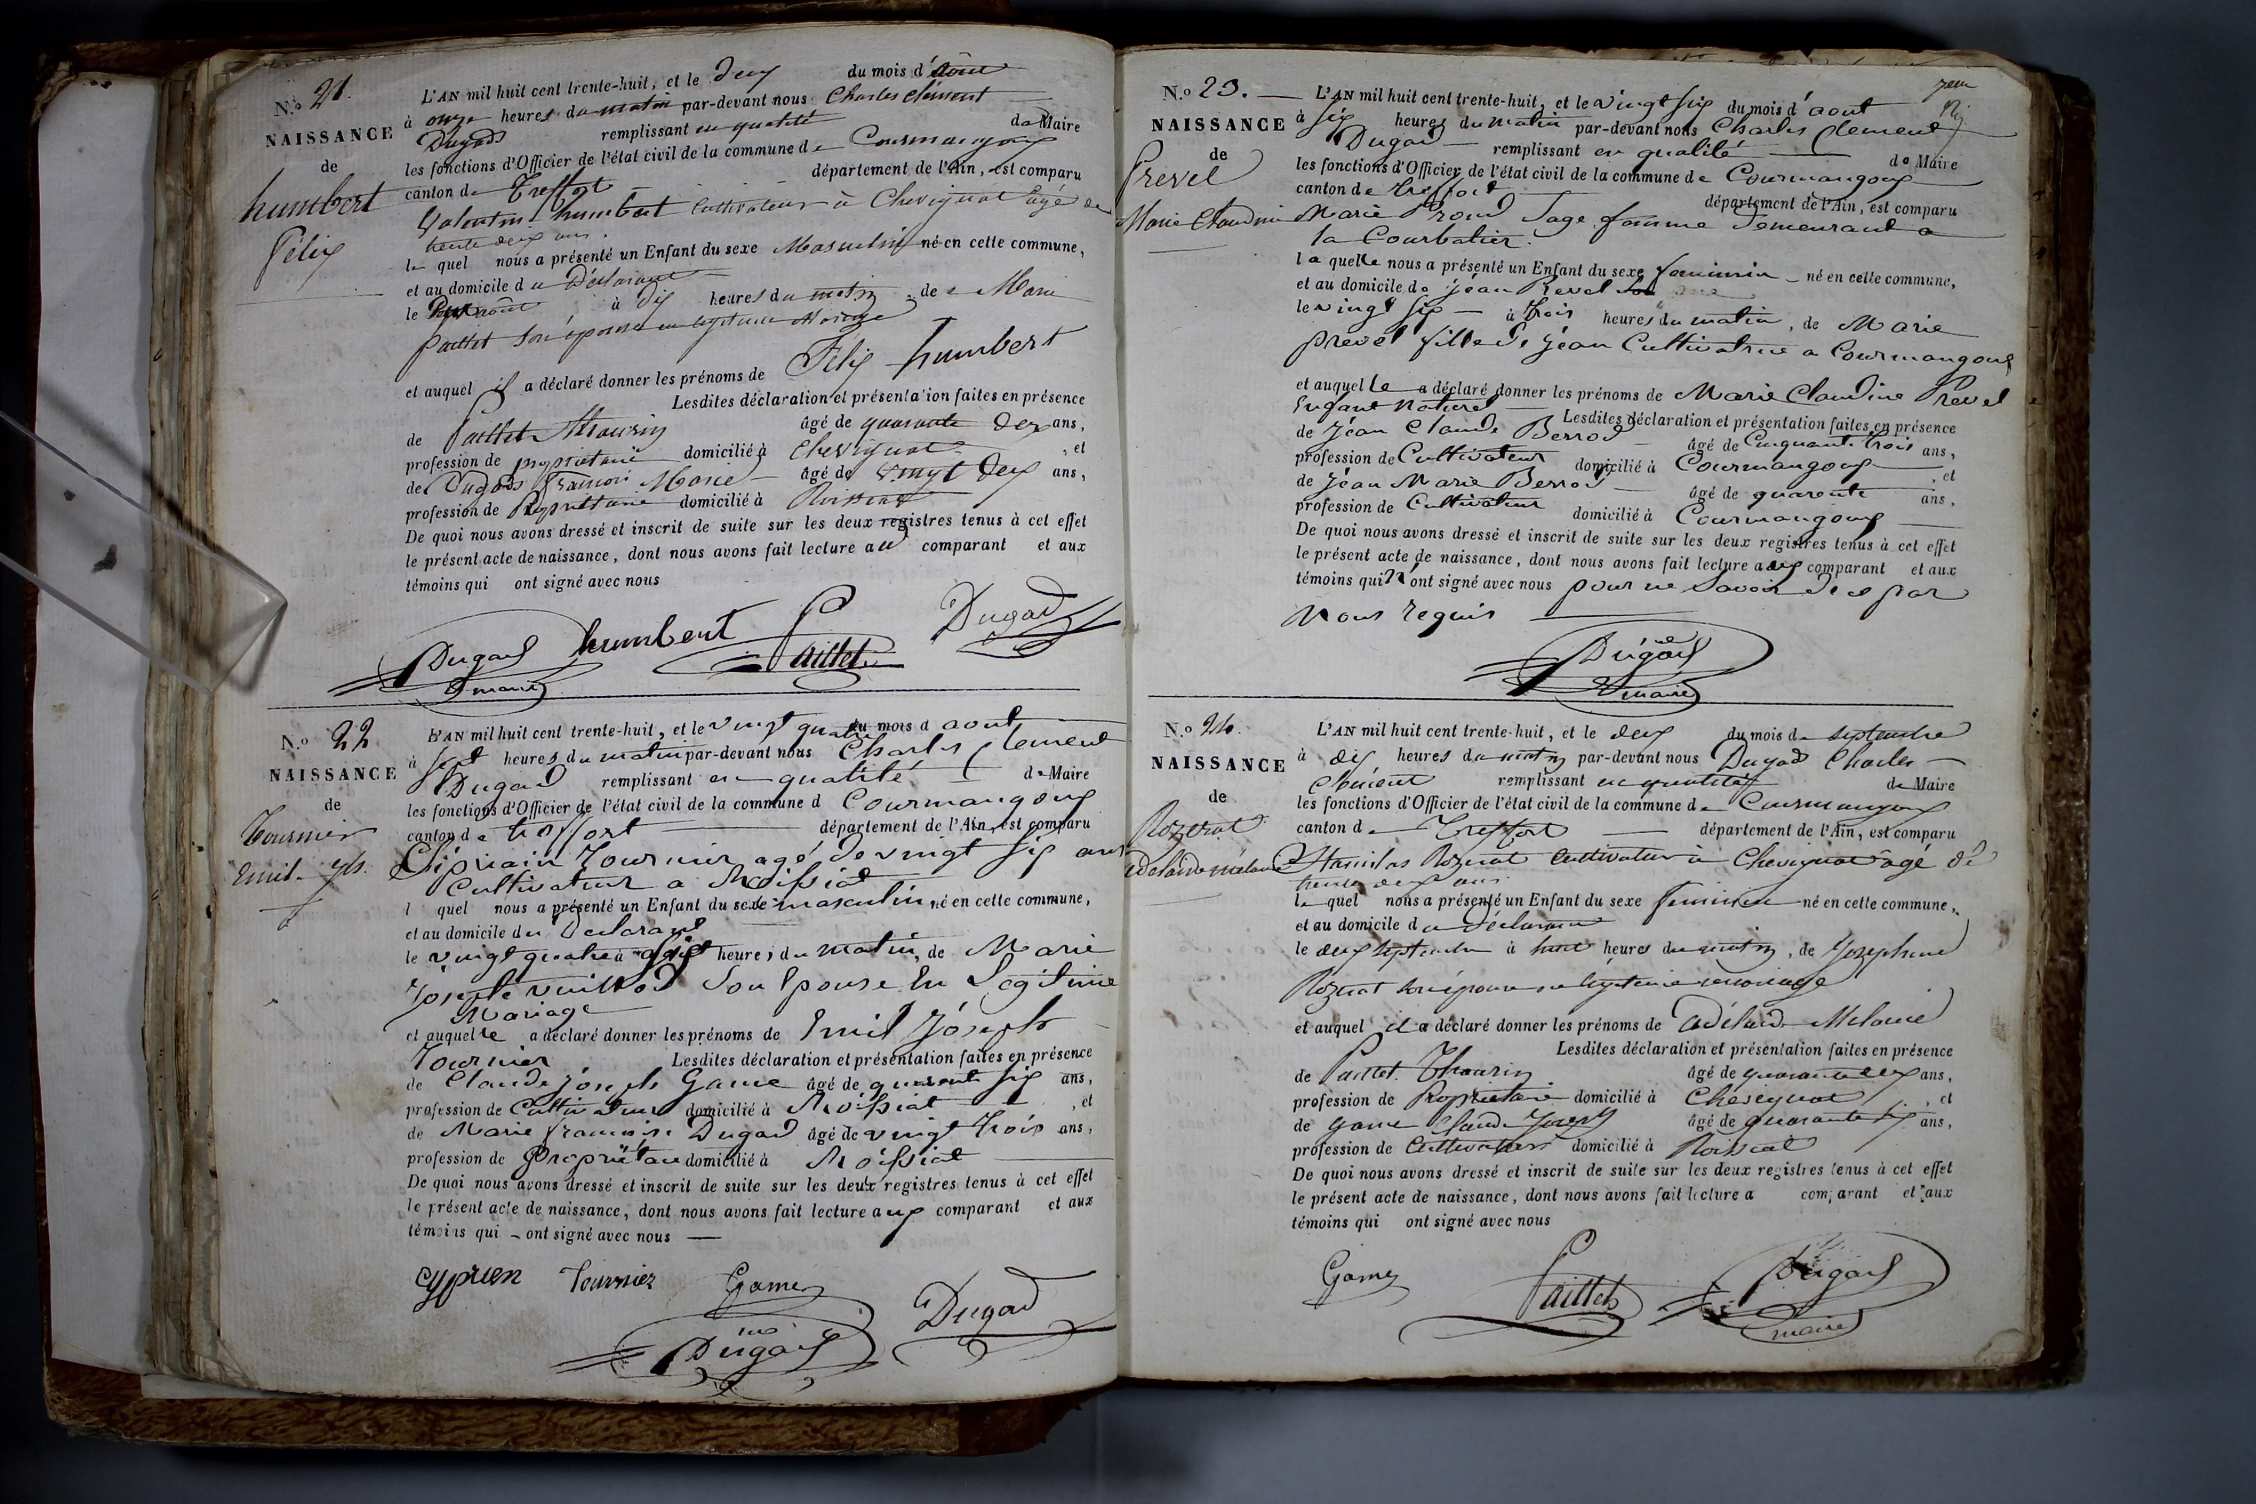 N.o 21.
NAISSANCE
de
humbert
Félix
L'AN mil huit cent trente-huit, et le deux du mois d'août
à onze heures du matin par-devant nous Charles clément
Dugad remplissant en qualité de Maire
les fonctions d'Officier de l'état civil de la commune de Courmangoux
canton de Treffort département de l'Ain, est comparu
humbert Cultivateur à Chevignat âgé de
trente deux ans.
le quel nous a présenté un Enfant du sexe Masculin né en cette commune,
et au domicile du Déclarant
le août à dix heures du matin, de Marie
paillet son épouse en légitime Mariage
et auquel il a déclaré donner les prénoms de Félix humbert
Lesdites déclaration et présentation faites en présence
de Paillet âgé de quarante deux ans,
profession de propriétaire domicilié à Chevignat, et
de Dugad Marie âgé de vingt deux ans,
profession de Propriétaire domicilié à Roissiat
De quoi nous avons dressé et inscrit de suite sur les deux registres tenus à cet effet
le présent acte de naissance, dont nous avons fait lecture au comparant et aux
témoins qui ont signé avec nous
Dugad humbert Paillet Dugad
maire
N.o 22
NAISSANCE
de
Tournier
Emil
L'AN mil huit cent trente-huit, et le vingt quatre du mois d août
à sept heures du matin par-devant nous Charles Clement
Dugad remplissant en qualité de Maire
les fonctions d'Officier de l'état civil de la commune d Courmangoux
canton de treffort département de l'Ain, est comparu
Ciprien Tournier agé de vingt six ans
Cultivateur a Roissiat
l quel nous a présenté un Enfant du sexe masculin né en cette commune,
et au domicile du Déclarant
le vingt quatre à heures du matin, de Marie
Josephte vuillod Son Epouse En Légitime
Mariage
et auquel le a déclaré donner les prénoms de Emil Joseph
Tournier Lesdites déclaration et présentation faites en présence
de Claude Joseph Game âgé de quarante six ans,
profession de Cultivateur domicilié à Roissiat, et
de Marie francois Dugad âgé de vingt trois ans,
profession de Propriétaire domicilié à Roissiat
De quoi nous avons dressé et inscrit de suite sur les deux registres tenus à cet effet
le présent acte de naissance, dont nous avons fait lecture aux comparant et aux
témoins qui ont signé avec nous
cyprien Tournier Game
Dugad Dugad
N.o 23.
NAISSANCE
de
Prevel
Marie Claudine
L'AN mil huit cent trente-huit, et le vingt six du mois d'aout
à six heures du matin par-devant nous Charles Clement
Dugad remplissant en qualité de Maire
les fonctions d'Officier de l'état civil de la commune de Courmangoux
canton de treffort département de l'Ain, est comparu
Marie Proud Sage femme Demeurant a
la Courbatier.
la quelle nous a présenté un Enfant du sexe feminin né en cette commune,
et au domicile de jéan Prevel
le vingt six à trois heures du matin, de Marie
prevel fille de jéan Cultivatrice a Courmangoux
et auquel le a déclaré donner les prénoms de Marie Claudine Prevel
Enfant Naturel Lesdites déclaration et présentation faites en présence
de jéan Claude Berrod âgé de Cinquante trois ans,
profession de Cultivateur domicilié à Courmangoux, et
de jéan Marie Berrod âgé de quarente ans,
profession de Cultivateur domicilié à Courmangoux
De quoi nous avons dressé et inscrit de suite sur les deux registres tenus à cet effet
le présent acte de naissance, dont nous avons fait lecture aux comparant et aux
témoins qui n'ont signé avec nous pour ne Savoir de ce par
Nous requis
Dugad
maire
N.o 24.
NAISSANCE
de
Rozerat
adelaide mélanie
L'AN mil huit cent trente-huit, et le deux du mois de septembre
à dix heures du matin par-devant nous Dugad Charles
Clément remplissant en qualité de Maire
les fonctions d'Officier de l'état civil de la commune de Courmangoux
canton de Treffort département de l'Ain, est comparu
Stanislas Cultivateur à Chevignat âgé de
trente deux ans
le quel nous a présenté un Enfant du sexe feminin né en cette commune,
et au domicile du déclarant
le deux septembre à heures du matin, de Josephine
son épouse en légitime mariage
et auquel il a déclaré donner les prénoms de adélaide Mélanie
Lesdites déclaration et présentation faites en présence
de Paillet âgé de quarante deux ans,
profession de Propriétaire domicilié à Chevignat, et
de game Claude Joseph âgé de quarante six ans,
profession de Cultivateur domicilié à Roissiat
De quoi nous avons dressé et inscrit de suite sur les deux registres tenus à cet effet
le présent acte de naissance, dont nous avons fait lecture a comparant et aux
témoins qui ont signé avec nous
Game Paillet Dugad
maire